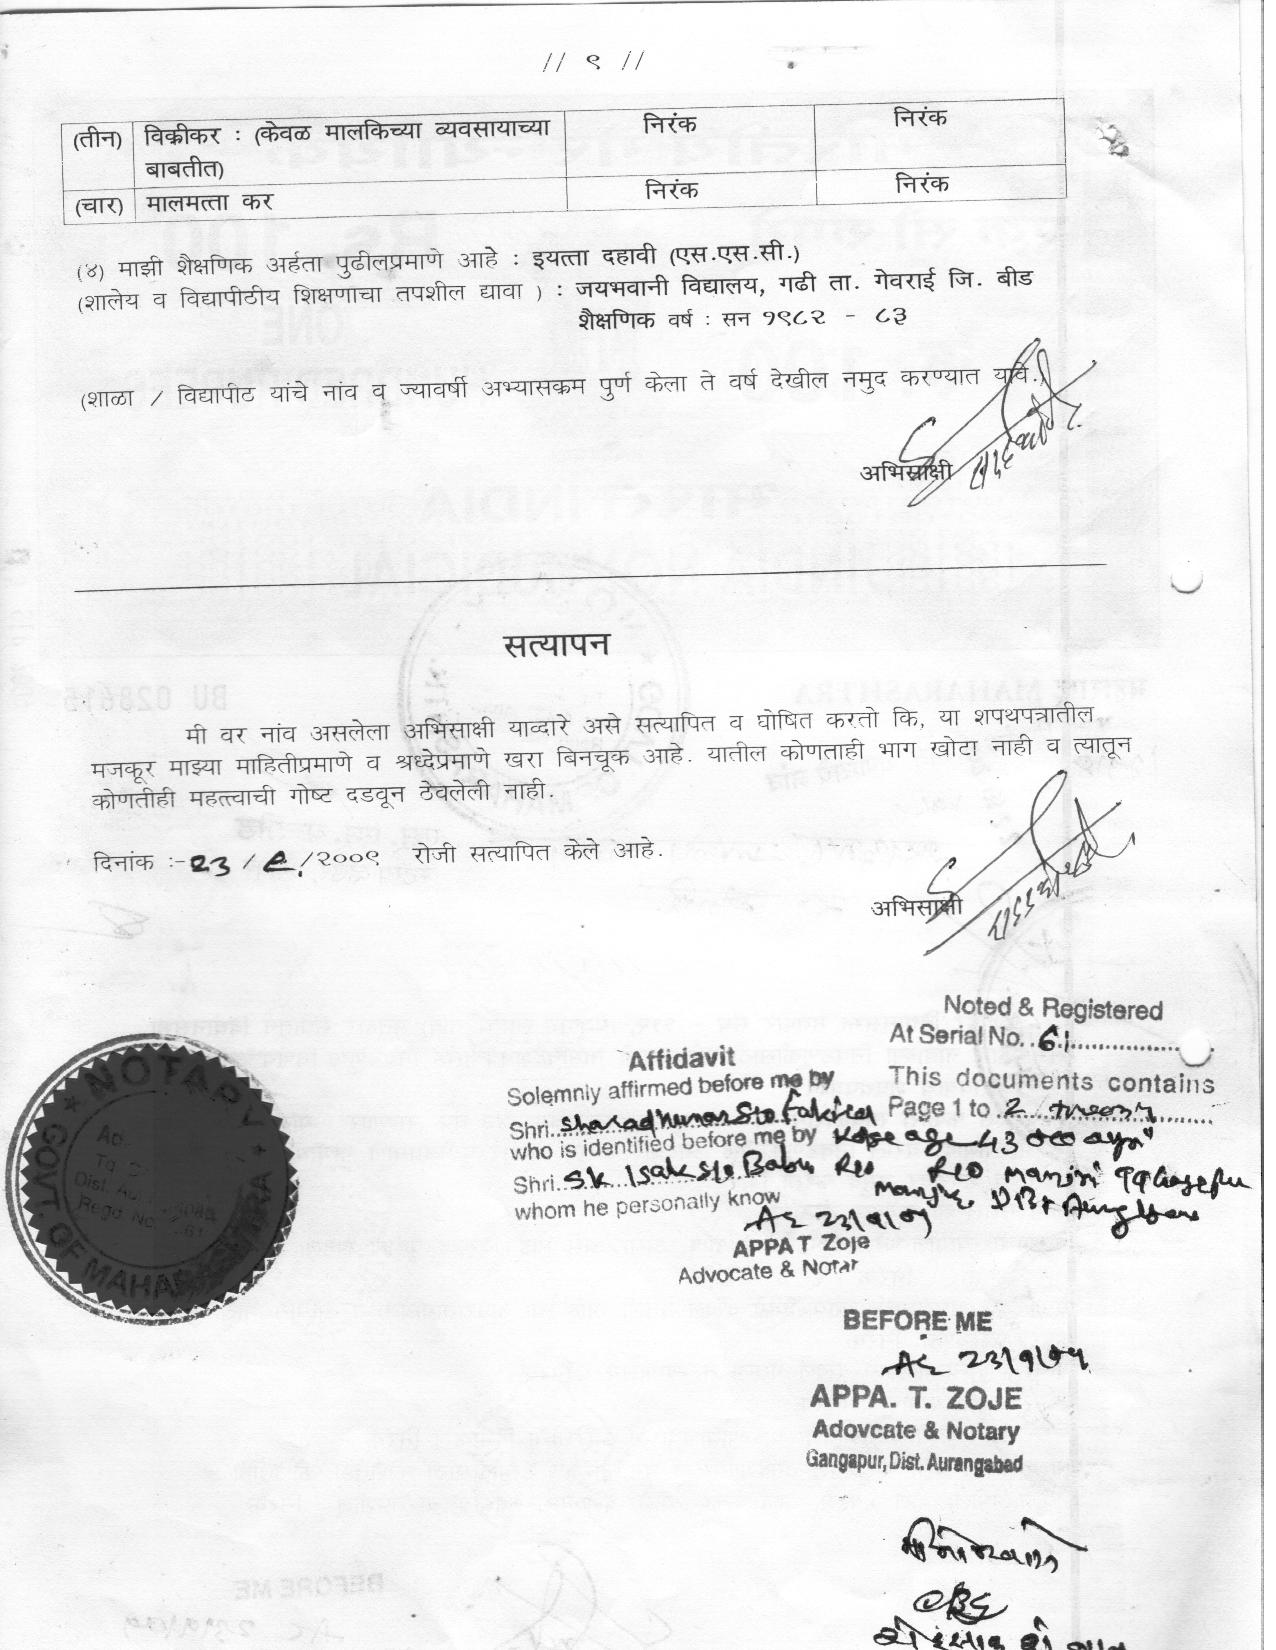 // ९ //
(तीन) विक्रीकर : (केवळ मालकिच्या व्यवसायाच्या बाबतीत) निरंक निरंक
(चार) मालमत्ता कर निरंक निरंक
(४) माझी शैक्षणिक अर्हता पुढीलप्रमाणे आहे : इयत्ता दहावी (एस.एस.सी.)
(शालेय व विद्यापीठीय शिक्षणाचा तपशील द्यावा ) : जयभवानी विद्यालय, गढी ता. गेवराई जि. बीड
शैक्षणिक वर्ष : सन १९८२ - ८३
(शाळा / विद्यापीठ यांचे नांव व ज्यावर्षी अभ्यासक्रम पुर्ण केला ते वर्ष देखील नमुद करण्यात यावे.)
अभिसाक्षी
सत्यापन
मी वर नांव असलेला अभिसाक्षी याव्दारे असे सत्यापित व घोषित करतो कि, या शपथपत्रातील
मजकूर माझ्या माहितीप्रमाणे व श्रध्देप्रमाणे खरा बिनचूक आहे. यातील कोणताही भाग खोटा नाही व त्यातून
कोणतीही महत्त्वाची गोष्ट दडवून ठेवलेली नाही.
दिनांक :- 23 / ९ /२००९ रोजी सत्यापित केले आहे.
अभिसाक्षी
Noted & Registered
At Serial No. 61
This documents contains
Page 1 to 2
Affidavit
Solemnly affirmed before me by
Shri. Sharadkumar S/o Fakira
age 43
who is identified before me by
Shri. S.k Isak S/o Babu
whom he personally know
23/9/09
APPA T Zoje
Advocate & Notar
NOTARY
GOVT. OF MAHARASHTRA
BEFORE ME
23/9/09
APPA. T. ZOJE
Adovcate & Notary
Gangapur, Dist. Aurangabad